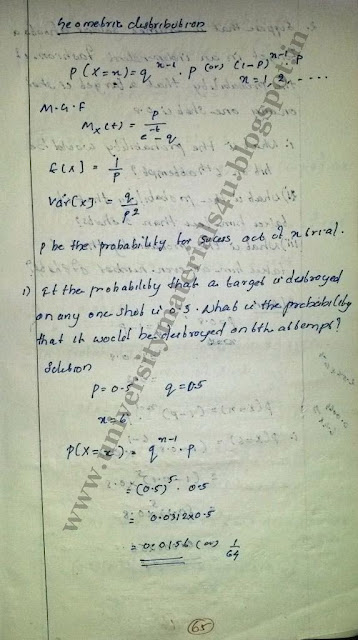 Geometric distribution
P(X=x) = q^{x-1} . P (or) (1-P)^{x-1} P
x = 1, 2, ....
M.G.F
M_x(t) = P / (e^{-t} - q)
E[X] = 1/P
Var[X] = q/P^2
P be the probability for sucess out of x trial.
1) If the probability that a target is destroyed
on any one shot is 0.5. What is the probability
that it would be destroyed on 6th attempt?
Solution
P = 0.5 q = 0.5
x = 6
P(X=x) = q^{x-1} . P
= (0.5)^5 . 0.5
= 0.0312x0.5
= 0.0156 (or) 1/64
65
www.universitymaterials4u.blogspot.in